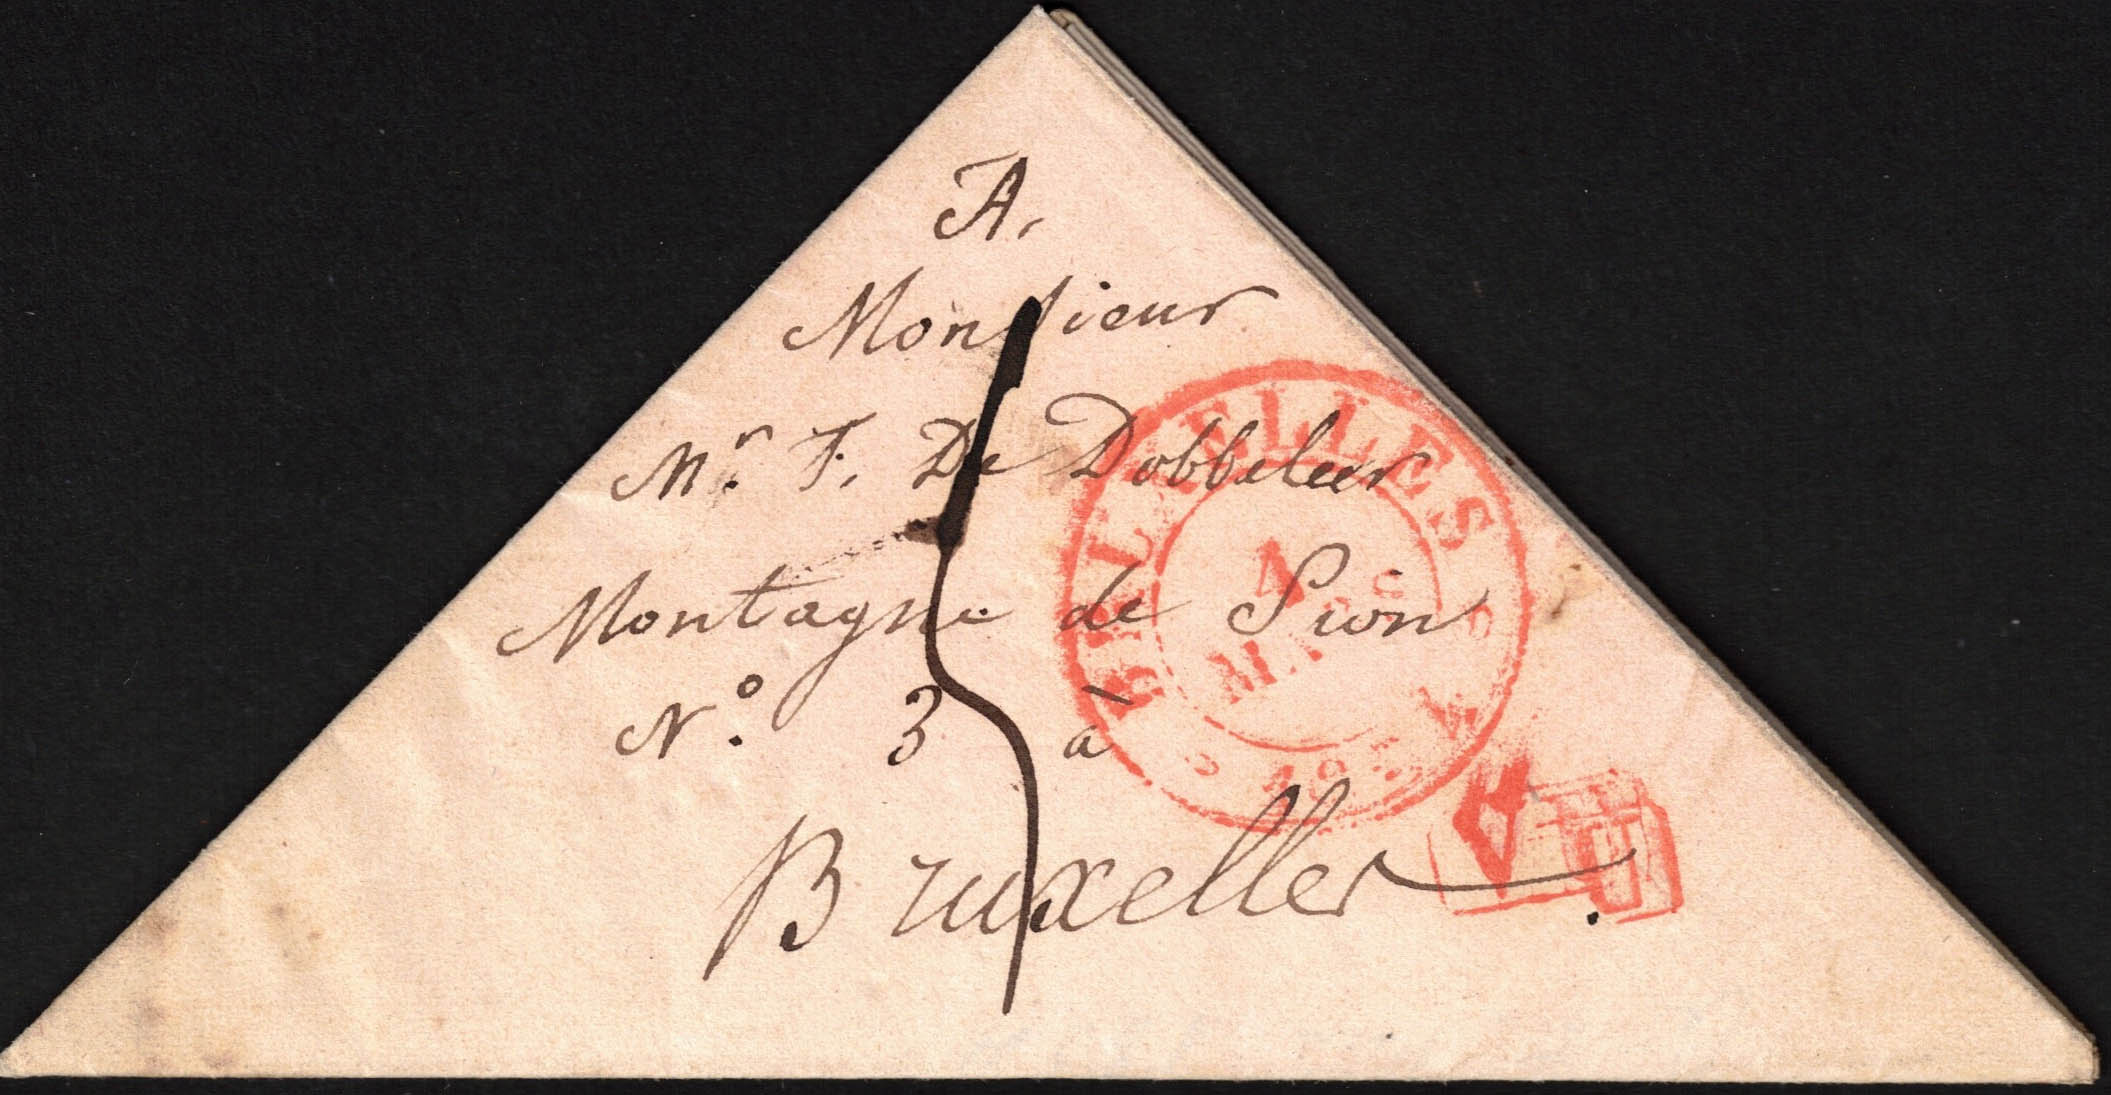 A,
Monsieur
Mr. F. De Dobbeleer
Montagne de Sion
No. 3 à
Bruxelles
BRUXELLES
4